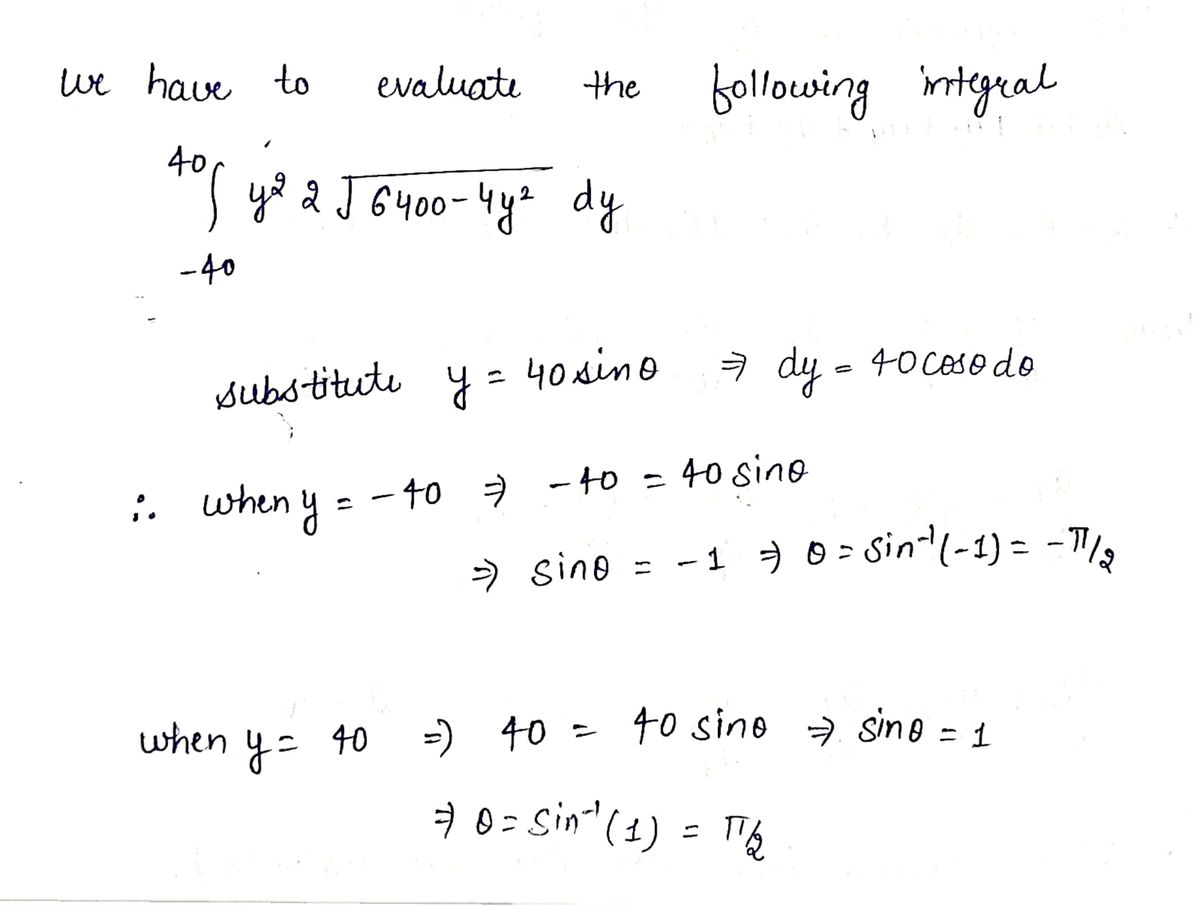 we have to evaluate the following integral
40∫ y² 2√6400-4y² dy
-40
substitute y = 40 sinθ ⇒ dy = 40 cosθ dθ
∴ when y = -40 ⇒ -40 = 40 sinθ
⇒ sinθ = -1 ⇒ θ = sin⁻¹(-1) = -π/2
when y = 40 ⇒ 40 = 40 sinθ ⇒ sinθ = 1
⇒ θ = sin⁻¹(1) = π/2